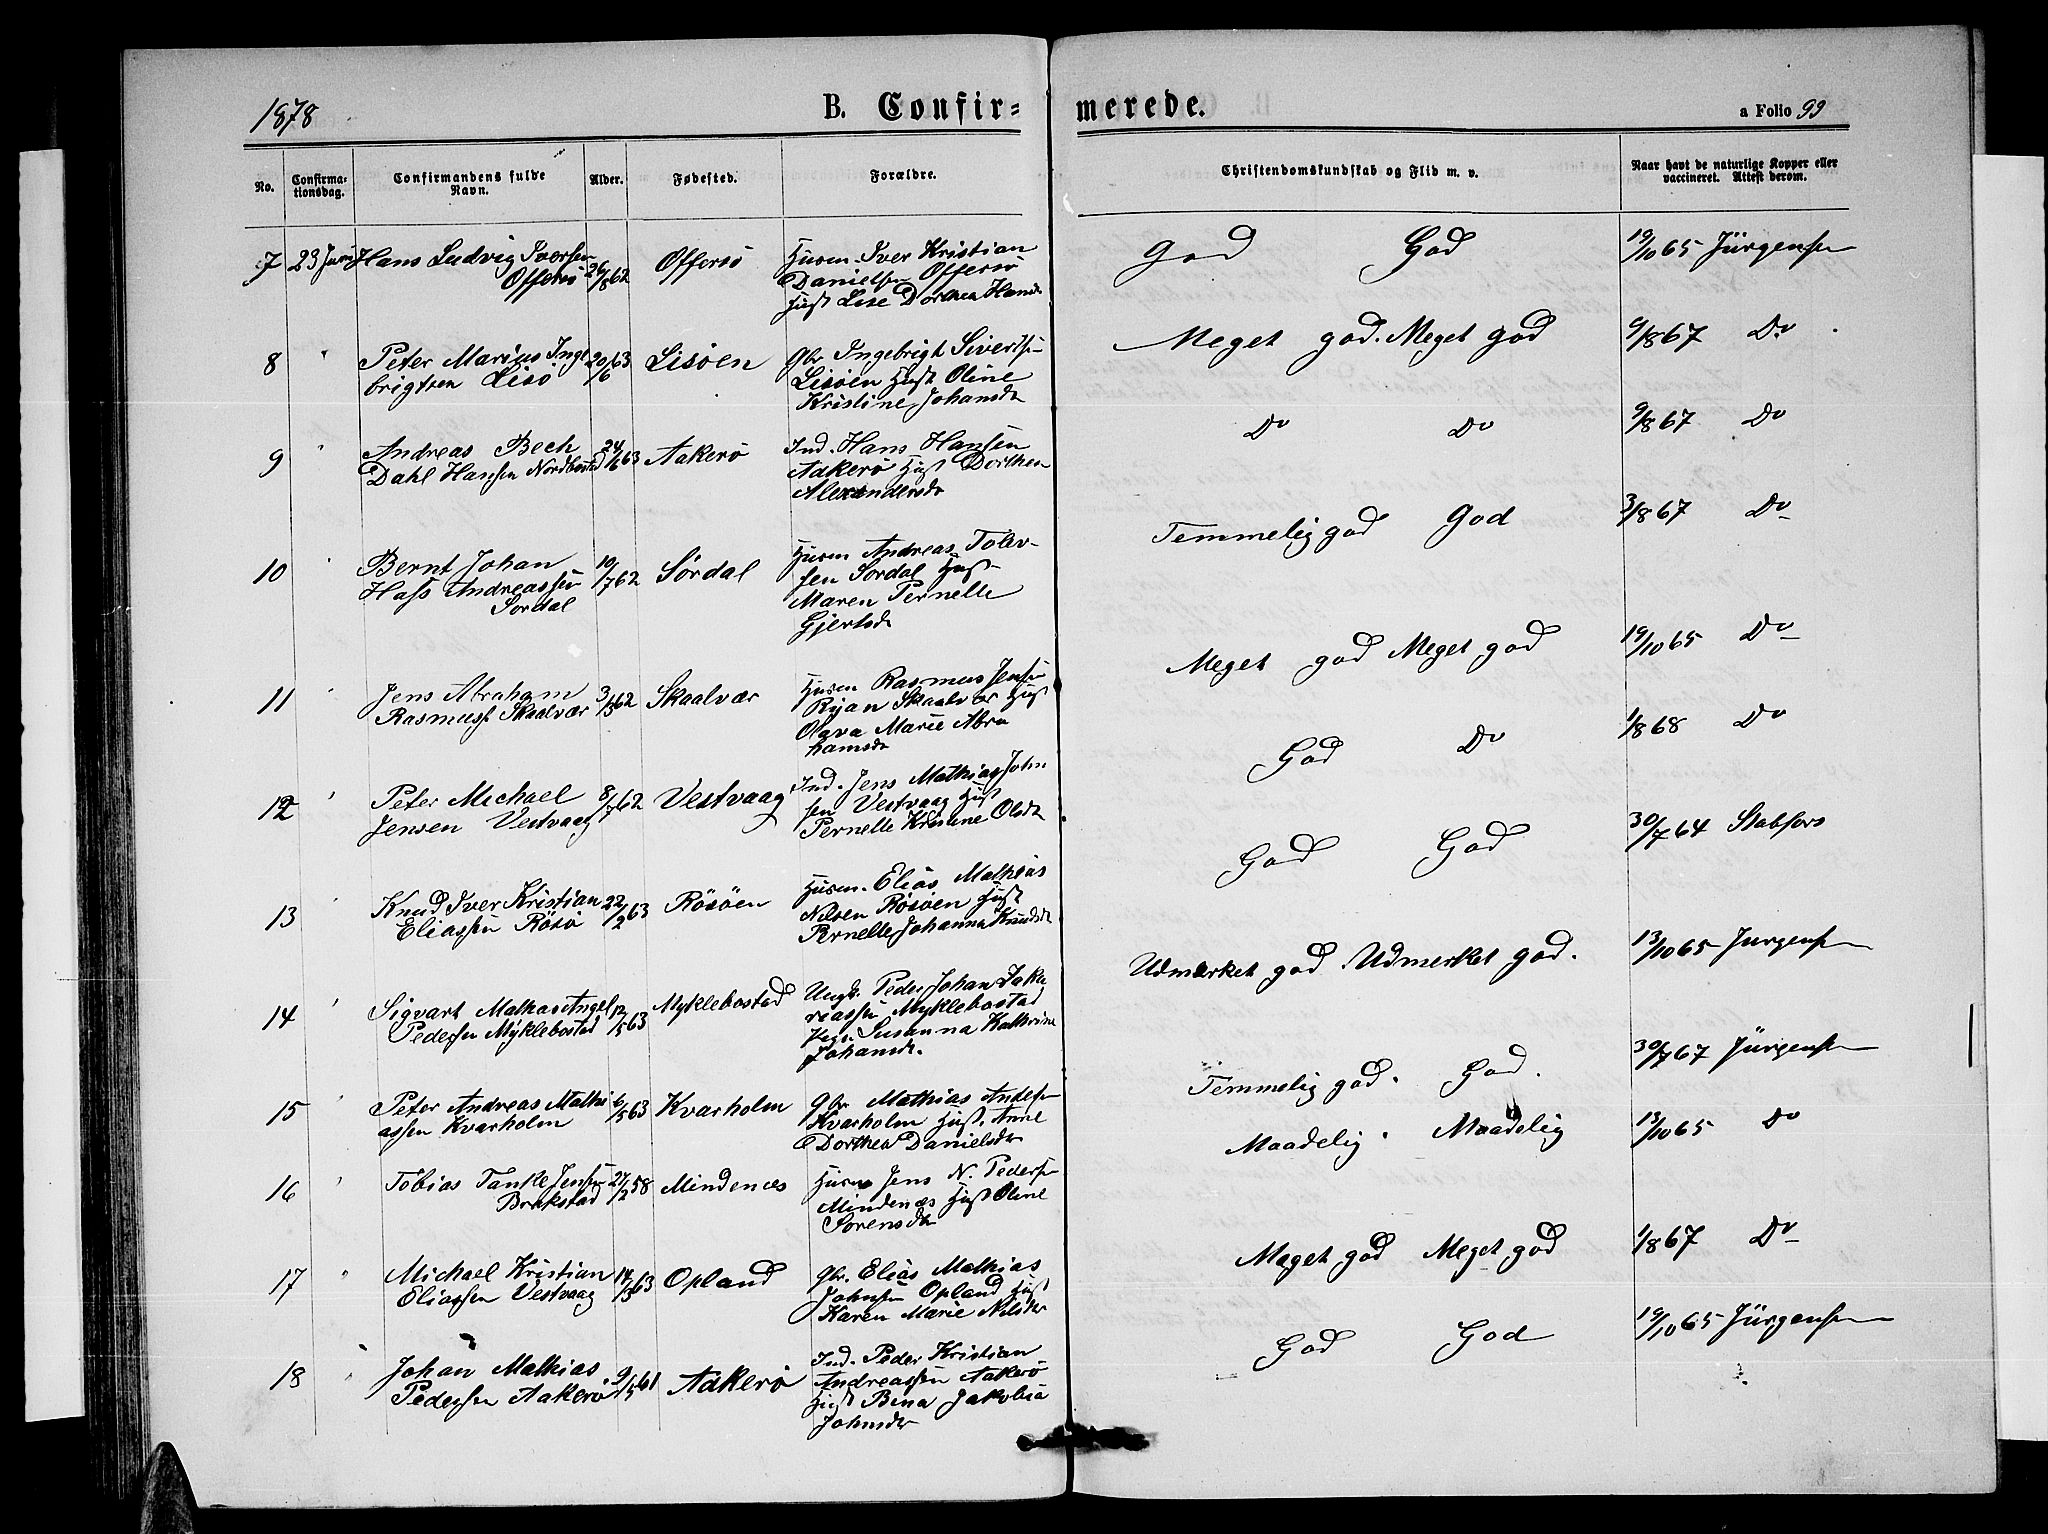 1878
B. Confir=
merede.
a Folio 99
No.
Confirma-
tionsdag.
Confirmandens fulde
Navn.
Alder.
Fødested.
Forældre.
Christendomskundskab og Flid m. v.
Naar havt de naturlige Kopper eller
vaccineret. Attest derom.
7 23 Juni Hans Ludvig Iversen
Offersö
26/8 62
Offersö
Husm. Iver Kristian
Danielsen Offersö
Hust Lise Dorthea Hansdr
God God
19/10 65 Jürgensen
8 " Peter Marius Inge
brigtsen Lisö
20/6 63
Lisöen
Gbr Ingebrigt Sivertsen
Lisöen Hust Oline
Kristine Johansdr
Meget god. Meget god
9/8 67 Do
9 " Andreas Bech
Dahl Hansen Nordbostad
24/6 63
Aakerö
Ind. Hans Hansen
Aakerö Hust Dorthea
Alexandersdr
Do Do
9/8 67 Do
10 " Bernt Johan
Hass Andreassen
Sördal
10/7 62
Sördal
Husm Andreas Tolev-
sen Sördal Hust
Maren Pernelle
Gjertsdr
Temmelig god God
3/8 67 Do
11 " Jens Abraham
Rasmuss Skaalvær
3/3 62
Skaalvær
Husm Rasmus Jensen
Ryan Skaalvær Hust
Olava Marie Abra
hamsdr
Meget god Meget god
19/10 65 Do
12 " Peter Michael
Jensen Vestvaag
8/7 62
Vestvaag
Ind. Jens Mathias John
sen Vestvaag Hust
Pernelle Kristine Olsdr
God Do
1/8 68 Do
13 " Knud Iver Kristian
Eliassen Rösö
22/2 63
Rösöen
Husm. Elias Mathias
Nilsen Rösöen Hust
Pernelle Johanna Knudsdr
God God
30/7 64 Stabfors
14 " Sigvart Mathias Angel
Pedersen Myklebostad
12/5 63
Myklebostad
Ungk. Peder Johan Zaka
riassen Myklebostad
Pige Susanna Kathrine
Johansdr.
Udmærket god. Udmerket god.
13/10 65 Jurgensen
15 Peter Andreas Mathi
assen Kvarholm
6/5 63
Kvarholm
Gbr Mathias Andersen
Kvarholm Hust. Anne
Dorthea Danielsdr
Temmelig god. God.
30/7 67 Jürgensen
16 " Tobias Tanke Jensen
Brakstad
27/2 58
Mindenæs
Husm Jens N. Pedersen
Mindenæs Hust Oline
Sorensdr
Maadelig. Maadelig
13/10 65 Do
17 " Michael Kristian
Eliassen Vestvaag
14/3 63
Opland
Gbr. Elias Mathias
Johnsen Opland Hust
Karen Marie Nilsdr
Meget god Meget god
1/8 67 Do
18 " Johan Mathias
Pedersen Aakerö
9/5 61
Aakerö
Ind. Peder Kristian
Andreassen Aakerö
Hust Bina Jakobia
Johnsdr
God God
19/10 65 Jürgensen